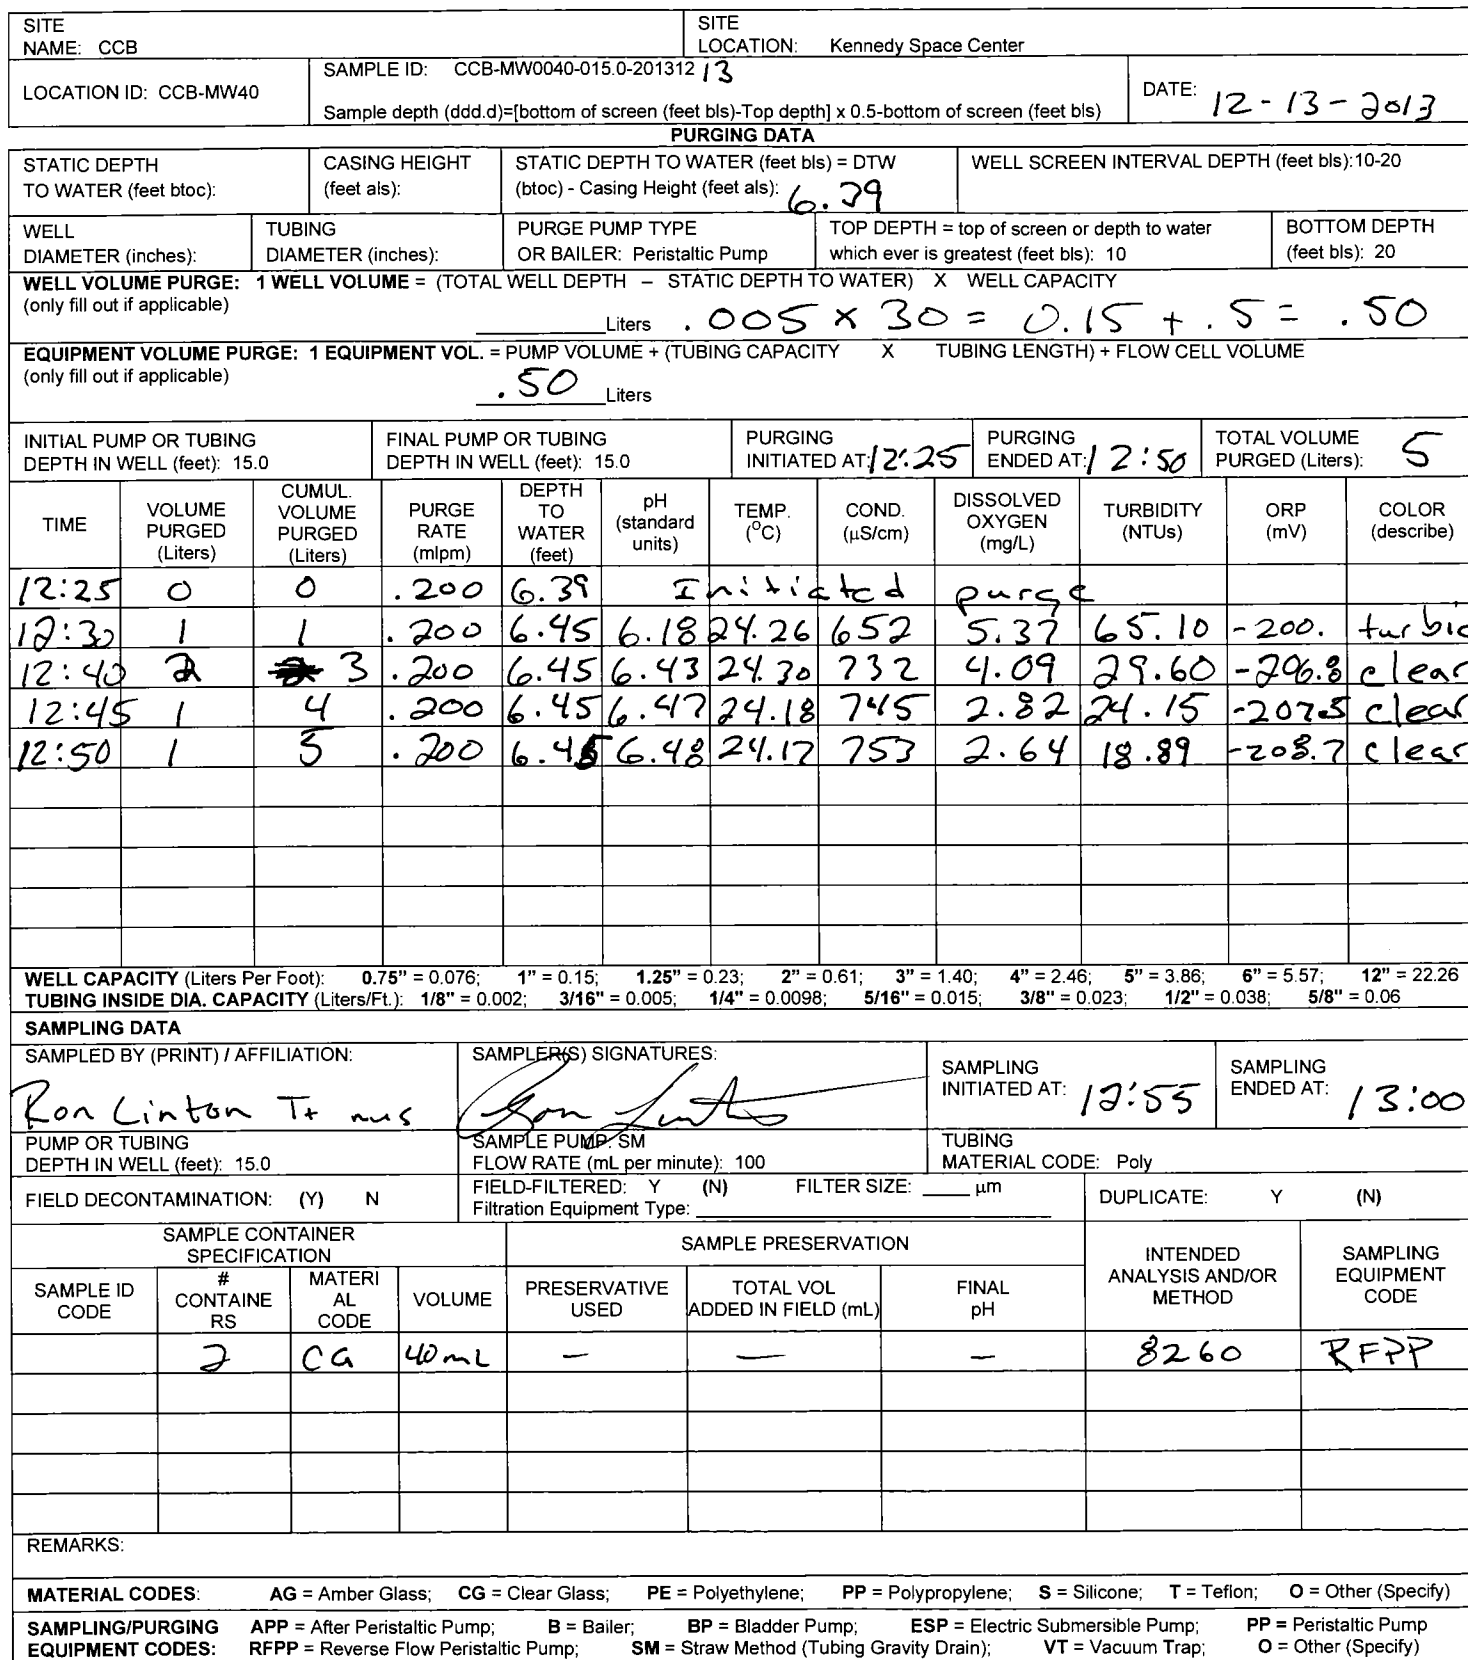 SITE
NAME: CCB
SITE
LOCATION: Kennedy Space Center
LOCATION ID: CCB-MW40
SAMPLE ID: CCB-MW0040-015.0-20131213
Sample depth (ddd.d)=[bottom of screen (feet bls)-Top depth] x 0.5-bottom of screen (feet bls)
DATE: 12-13-2013
PURGING DATA
STATIC DEPTH
TO WATER (feet btoc):
CASING HEIGHT
(feet als):
STATIC DEPTH TO WATER (feet bls) = DTW
(btoc) - Casing Height (feet als): 6.39
WELL SCREEN INTERVAL DEPTH (feet bls):10-20
WELL
DIAMETER (inches):
TUBING
DIAMETER (inches):
PURGE PUMP TYPE
OR BAILER: Peristaltic Pump
TOP DEPTH = top of screen or depth to water
which ever is greatest (feet bls): 10
BOTTOM DEPTH
(feet bls): 20
WELL VOLUME PURGE: 1 WELL VOLUME = (TOTAL WELL DEPTH – STATIC DEPTH TO WATER) X WELL CAPACITY
(only fill out if applicable)
Liters .005 x 30 = 0.15 + .5 = .50
EQUIPMENT VOLUME PURGE: 1 EQUIPMENT VOL. = PUMP VOLUME + (TUBING CAPACITY X TUBING LENGTH) + FLOW CELL VOLUME
(only fill out if applicable)
.50 Liters
INITIAL PUMP OR TUBING
DEPTH IN WELL (feet): 15.0
FINAL PUMP OR TUBING
DEPTH IN WELL (feet): 15.0
PURGING
INITIATED AT: 12:25
PURGING
ENDED AT: 12:50
TOTAL VOLUME
PURGED (Liters): 5
TIME
VOLUME
PURGED
(Liters)
CUMUL.
VOLUME
PURGED
(Liters)
PURGE
RATE
(mlpm)
DEPTH
TO
WATER
(feet)
pH
(standard
units)
TEMP.
(°C)
COND.
(µS/cm)
DISSOLVED
OXYGEN
(mg/L)
TURBIDITY
(NTUs)
ORP
(mV)
COLOR
(describe)
12:25 0 0 .200 6.39 Initiated purge
12:30 1 1 .200 6.45 6.18 24.26 652 5.37 65.10 -200. turbid
12:40 2 3 .200 6.45 6.43 24.30 732 4.09 29.60 -206.8 clear
12:45 1 4 .200 6.45 6.47 24.18 745 2.82 24.15 -207.5 clear
12:50 1 5 .200 6.45 6.48 24.17 753 2.64 18.89 -208.7 clear
WELL CAPACITY (Liters Per Foot): 0.75" = 0.076; 1" = 0.15; 1.25" = 0.23; 2" = 0.61; 3" = 1.40; 4" = 2.46; 5" = 3.86; 6" = 5.57; 12" = 22.26
TUBING INSIDE DIA. CAPACITY (Liters/Ft.): 1/8" = 0.002; 3/16" = 0.005; 1/4" = 0.0098; 5/16" = 0.015; 3/8" = 0.023; 1/2" = 0.038; 5/8" = 0.06
SAMPLING DATA
SAMPLED BY (PRINT) / AFFILIATION:
Ron Linton Tt nus
SAMPLER(S) SIGNATURES:
Ron Linton
SAMPLING
INITIATED AT: 12:55
SAMPLING
ENDED AT: 13:00
PUMP OR TUBING
DEPTH IN WELL (feet): 15.0
SAMPLE PUMP: SM
FLOW RATE (mL per minute): 100
TUBING
MATERIAL CODE: Poly
FIELD DECONTAMINATION: (Y) N
FIELD-FILTERED: Y (N) FILTER SIZE: ____ µm
Filtration Equipment Type:
DUPLICATE: Y (N)
SAMPLE CONTAINER
SPECIFICATION
SAMPLE PRESERVATION
INTENDED
ANALYSIS AND/OR
METHOD
SAMPLING
EQUIPMENT
CODE
SAMPLE ID
CODE
#
CONTAINE
RS
MATERI
AL
CODE
VOLUME
PRESERVATIVE
USED
TOTAL VOL
ADDED IN FIELD (mL)
FINAL
pH
2 CG 40mL — — — 8260 RFPP
REMARKS:
MATERIAL CODES: AG = Amber Glass; CG = Clear Glass; PE = Polyethylene; PP = Polypropylene; S = Silicone; T = Teflon; O = Other (Specify)
SAMPLING/PURGING APP = After Peristaltic Pump; B = Bailer; BP = Bladder Pump; ESP = Electric Submersible Pump; PP = Peristaltic Pump
EQUIPMENT CODES: RFPP = Reverse Flow Peristaltic Pump; SM = Straw Method (Tubing Gravity Drain); VT = Vacuum Trap; O = Other (Specify)